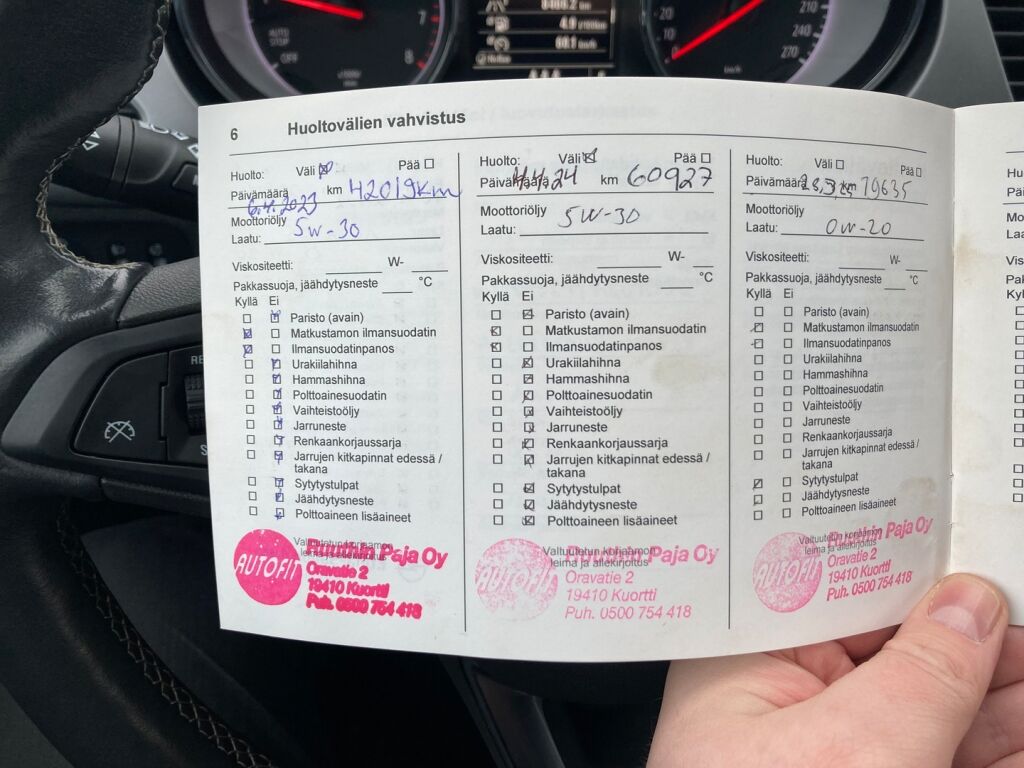 7
8
AUTO
STOP
OFF
8488.2 km
4.9
68.1 km/h
20
10
0
210
240
270
km/h
6 Huoltovälien vahvistus
Huolto: Väli Pää
Päivämäärä km 42019km
6.4.2023
Moottoriöljy
Laatu: 5W-30
Viskositeetti: W-
Pakkassuoja, jäähdytysneste °C
Kyllä Ei
Paristo (avain)
Matkustamon ilmansuodatin
Ilmansuodatinpanos
Urakiilahihna
Hammashihna
Polttoainesuodatin
Vaihteistoöljy
Jarruneste
Renkaankorjaussarja
Jarrujen kitkapinnat edessä /
takana
Sytytystulpat
Jäähdytysneste
Polttoaineen lisäaineet
Valtuutetun korjaamon
leima ja allekirjoitus
AUTOFIT
Ruuthin Paja Oy
Oravatie 2
19410 Kuortti
Puh. 0500 754 418
Huolto: Väli Pää
Päivämäärä 4.4.24 km 60927
Moottoriöljy
Laatu: 5W-30
Viskositeetti: W-
Pakkassuoja, jäähdytysneste °C
Kyllä Ei
Paristo (avain)
Matkustamon ilmansuodatin
Ilmansuodatinpanos
Urakiilahihna
Hammashihna
Polttoainesuodatin
Vaihteistoöljy
Jarruneste
Renkaankorjaussarja
Jarrujen kitkapinnat edessä /
takana
Sytytystulpat
Jäähdytysneste
Polttoaineen lisäaineet
Valtuutetun korjaamon
leima ja allekirjoitus
AUTOFIT
Ruuthin Paja Oy
Oravatie 2
19410 Kuortti
Puh. 0500 754 418
Huolto: Väli Pää
Päivämäärä km 79635
Moottoriöljy
Laatu: 0W-20
Viskositeetti: W-
Pakkassuoja, jäähdytysneste °C
Kyllä Ei
Paristo (avain)
Matkustamon ilmansuodatin
Ilmansuodatinpanos
Urakiilahihna
Hammashihna
Polttoainesuodatin
Vaihteistoöljy
Jarruneste
Renkaankorjaussarja
Jarrujen kitkapinnat edessä /
takana
Sytytystulpat
Jäähdytysneste
Polttoaineen lisäaineet
Valtuutetun korjaamon
leima ja allekirjoitus
AUTOFIT
Ruuthin Paja Oy
Oravatie 2
19410 Kuortti
Puh. 0500 754 418